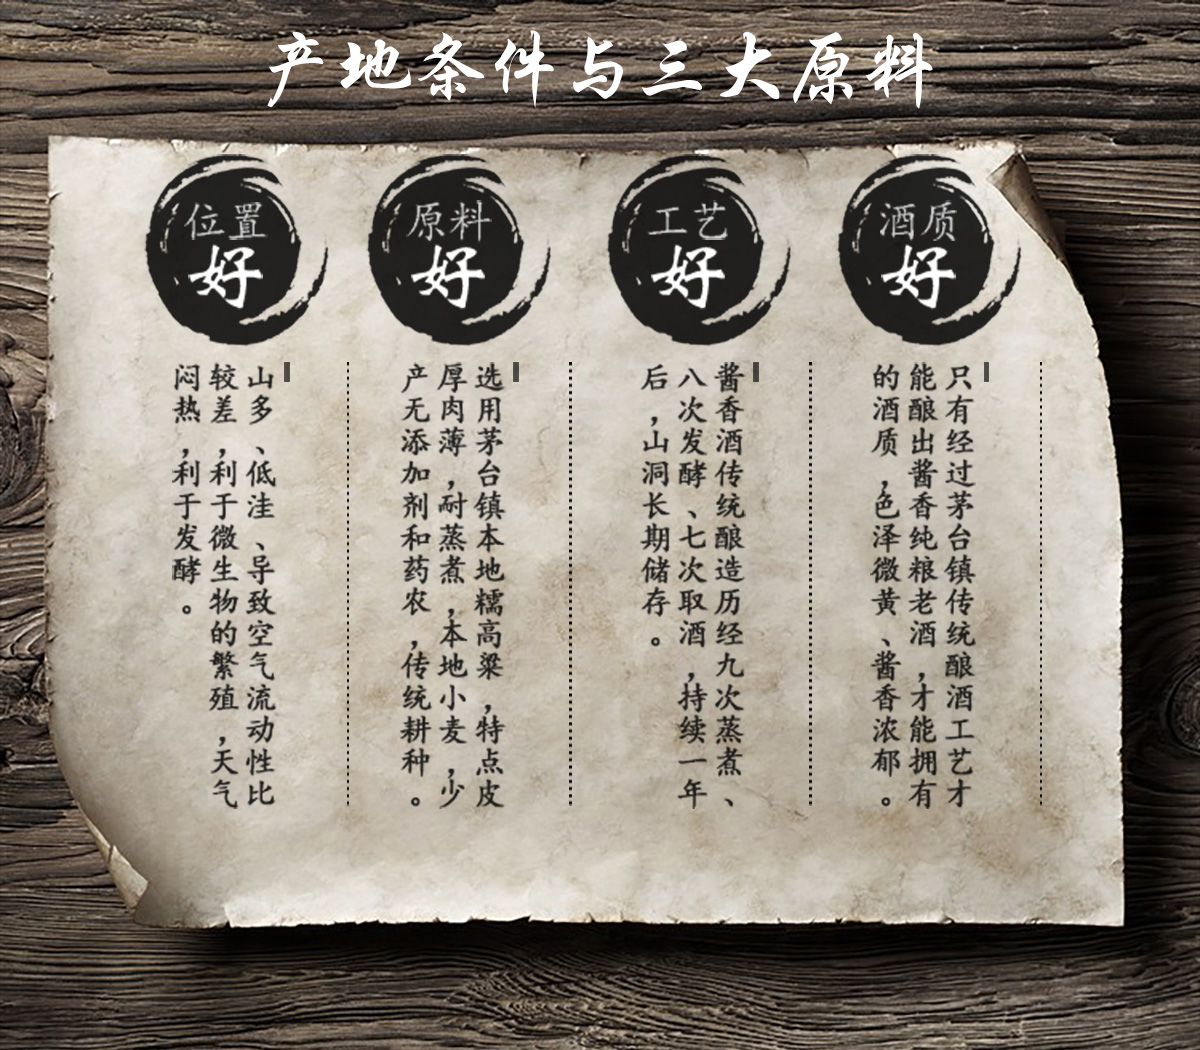 产地条件与三大原料
位置
好
山多、低洼、导致空气流动性比
较差,利于微生物的繁殖,天气
闷热,利于发酵。
原料
好
选用茅台镇本地糯高粱,特点皮
厚肉薄,耐蒸煮,本地小麦,少
产无添加剂和药农,传统耕种。
工艺
好
酱香酒传统酿造历经九次蒸煮、
八次发酵、七次取酒,持续一年
后,山洞长期储存。
酒质
好
只有经过茅台镇传统酿酒工艺才
能酿出酱香纯粮老酒,才能拥有
的酒质,色泽微黄、酱香浓郁。